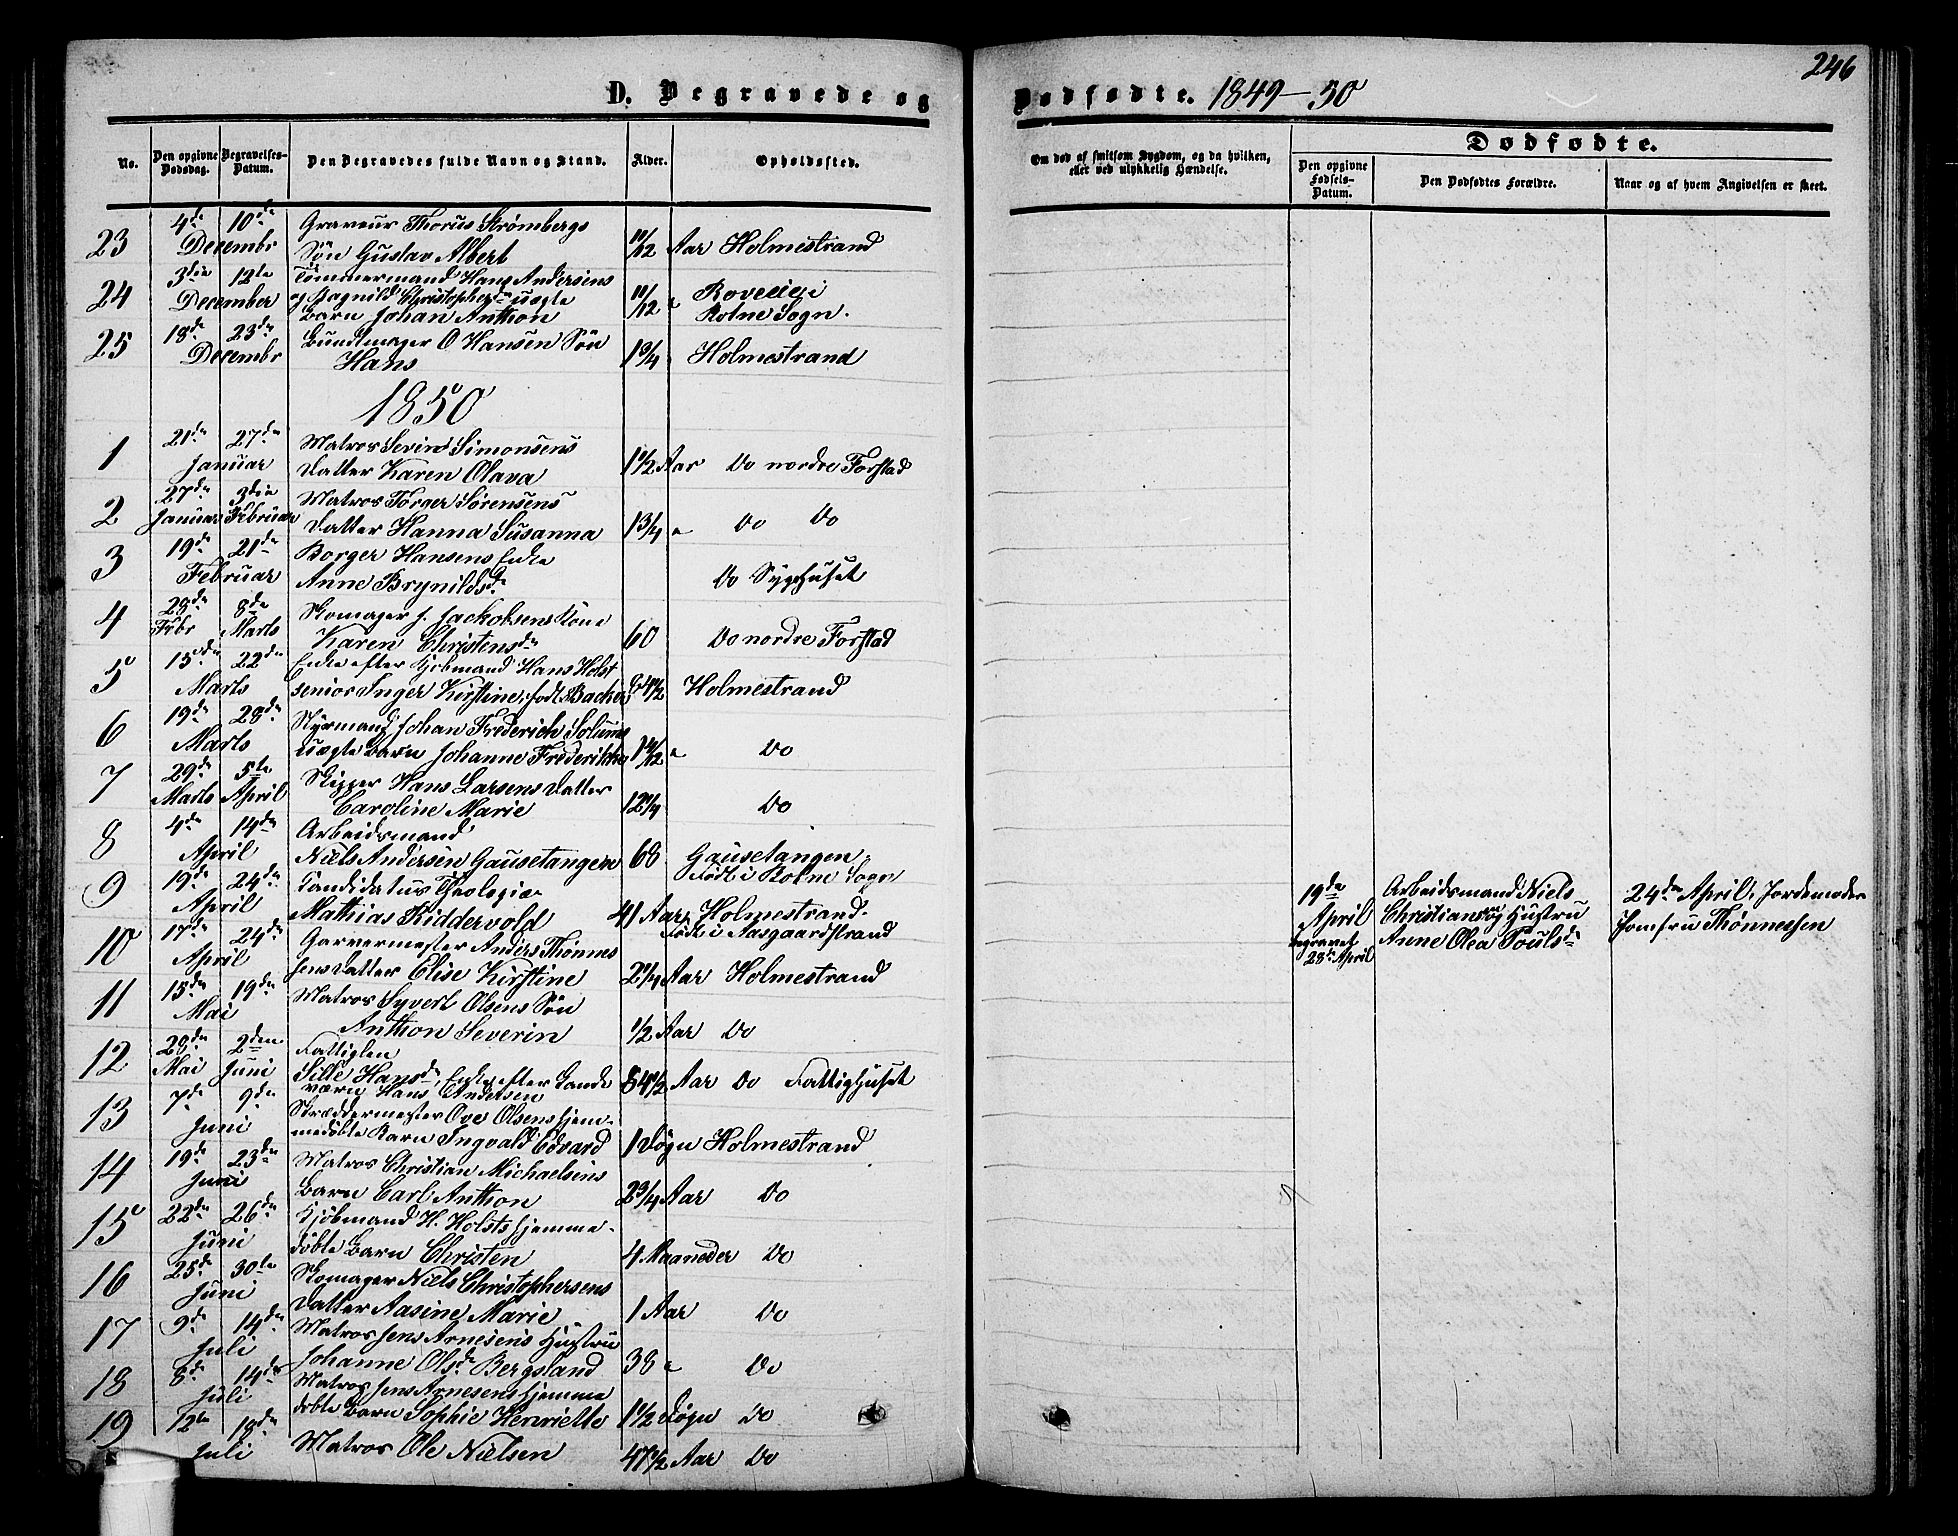 246
D. Begravede og Dødfødte. 1849-50
No.
Den opgivne Dødsdag.
Begravelses-Datum.
Den Begravedes fulde Navn og Stand.
Alder.
Opholdssted.
Om død af smitsom Sygdom, og da hvilken, eller ved ulykkelig Hændelse.
Dødfødte.
Den opgivne Fødsels-Datum.
Den Dødfødtes Forældre.
Naar og af hvem Angivelsen er skeet.
23 4de 10de Graveur Thorus Strømbergs
Decembr Søn Gustav Albert 11/12 Aar Holmestrand
24 3die 12te Tømmermand Hans Andersens
December og Pagnild Christophersdr uægte 11/12 "
Barn Johan Anthon Botne Sogn.
25 18de 23de Bundtmager O Hansen Søn
Decembr Hans 1 3/4 Holmestrand
1850
1 21de 27de Matros Severin Simonsens
Januar Datter Karen Olava 1 1/2 Aar Do nordre Forstad
2 27de 3die Matros Torger Sørensens
Januar Februar Datter Hanna Susanna 1 3/4 " Do Do
3 19de 21de Borger Hansens Enke
Februar Anne Brynildsdr Do Sygehuset
4 28de 8de Skomager J. Jackobsens Kone
Febr Marts Karen Christensdr 60 Do nordre Forstad
5 15de 22de Enke efter Kjøbmand Hans Holst
Marts senior Inger Kirstine, født Backe Holmestrand
6 19de 28de Styrmand Johan Frederich Solums
Marts uægte Barn Johanne Frederikke " Do
7 29de 5te Skipper Hans Larsens Datter
Marts April Caroline Marie 12 1/4 Do
8 4de 14de Arbeidsmand
April Niels Andersen Gausetangen 68 Gausetangen,
Født i Botne Sogn
9 19de 24de Candidatus Theologiæ
April Mathias Riddervold 41 Aar Holmestrand.
Født i Aasgaardstrand
10 17de 24de Garvermester Anders Thønnes
April sens Datter Elise Kirstine 2 1/4 Aar Holmestrand
11 15de 19de Matros Syvert Olsens Søn
Mai Anthon Severin 1/2 Aar Do
12 28de 2den Fattiglem
Mai Juni Sille Hansdr, Enke efter Lande 84 1/2 Aar Do Fattighuset
værn Hans Andersen
13 7de 9de Skræddermester Ove Olsens hjem-
Juni medøbte Barn Ingvald Edvard 1 Døgn Holmestrand
14 19de 23de Matros Christian Michaelsens
Juni Barn Carl Anthon 2 3/4 Aar Do
15 22de 26de Kjøbmand H. Holsts hjemme-
Juni døbte Barn Christen 4 Maaneder Do
16 25de 30te Skomager Niels Christophersens
Juni Datter Aasine Marie 1 Aar Do
17 9de 14de Matros Jens Arnesens Hustru
Juli Johanne Olsdr Bergsland 38 " Do
18 8de 14de Matros Jens Arnesens hjemme
Juli døbte Barn Sophie Henriette 1 1/2 Døgn Do
19 12te 18de
Juli Matros Ole Nielsen 47 1/2 Aar Do
19de Arbeidsmand Niels 24de April, Jordemoder
April Christians og Hustru Jomfru Thønnessen
begravet Anne Olea Poulsdr
28de April